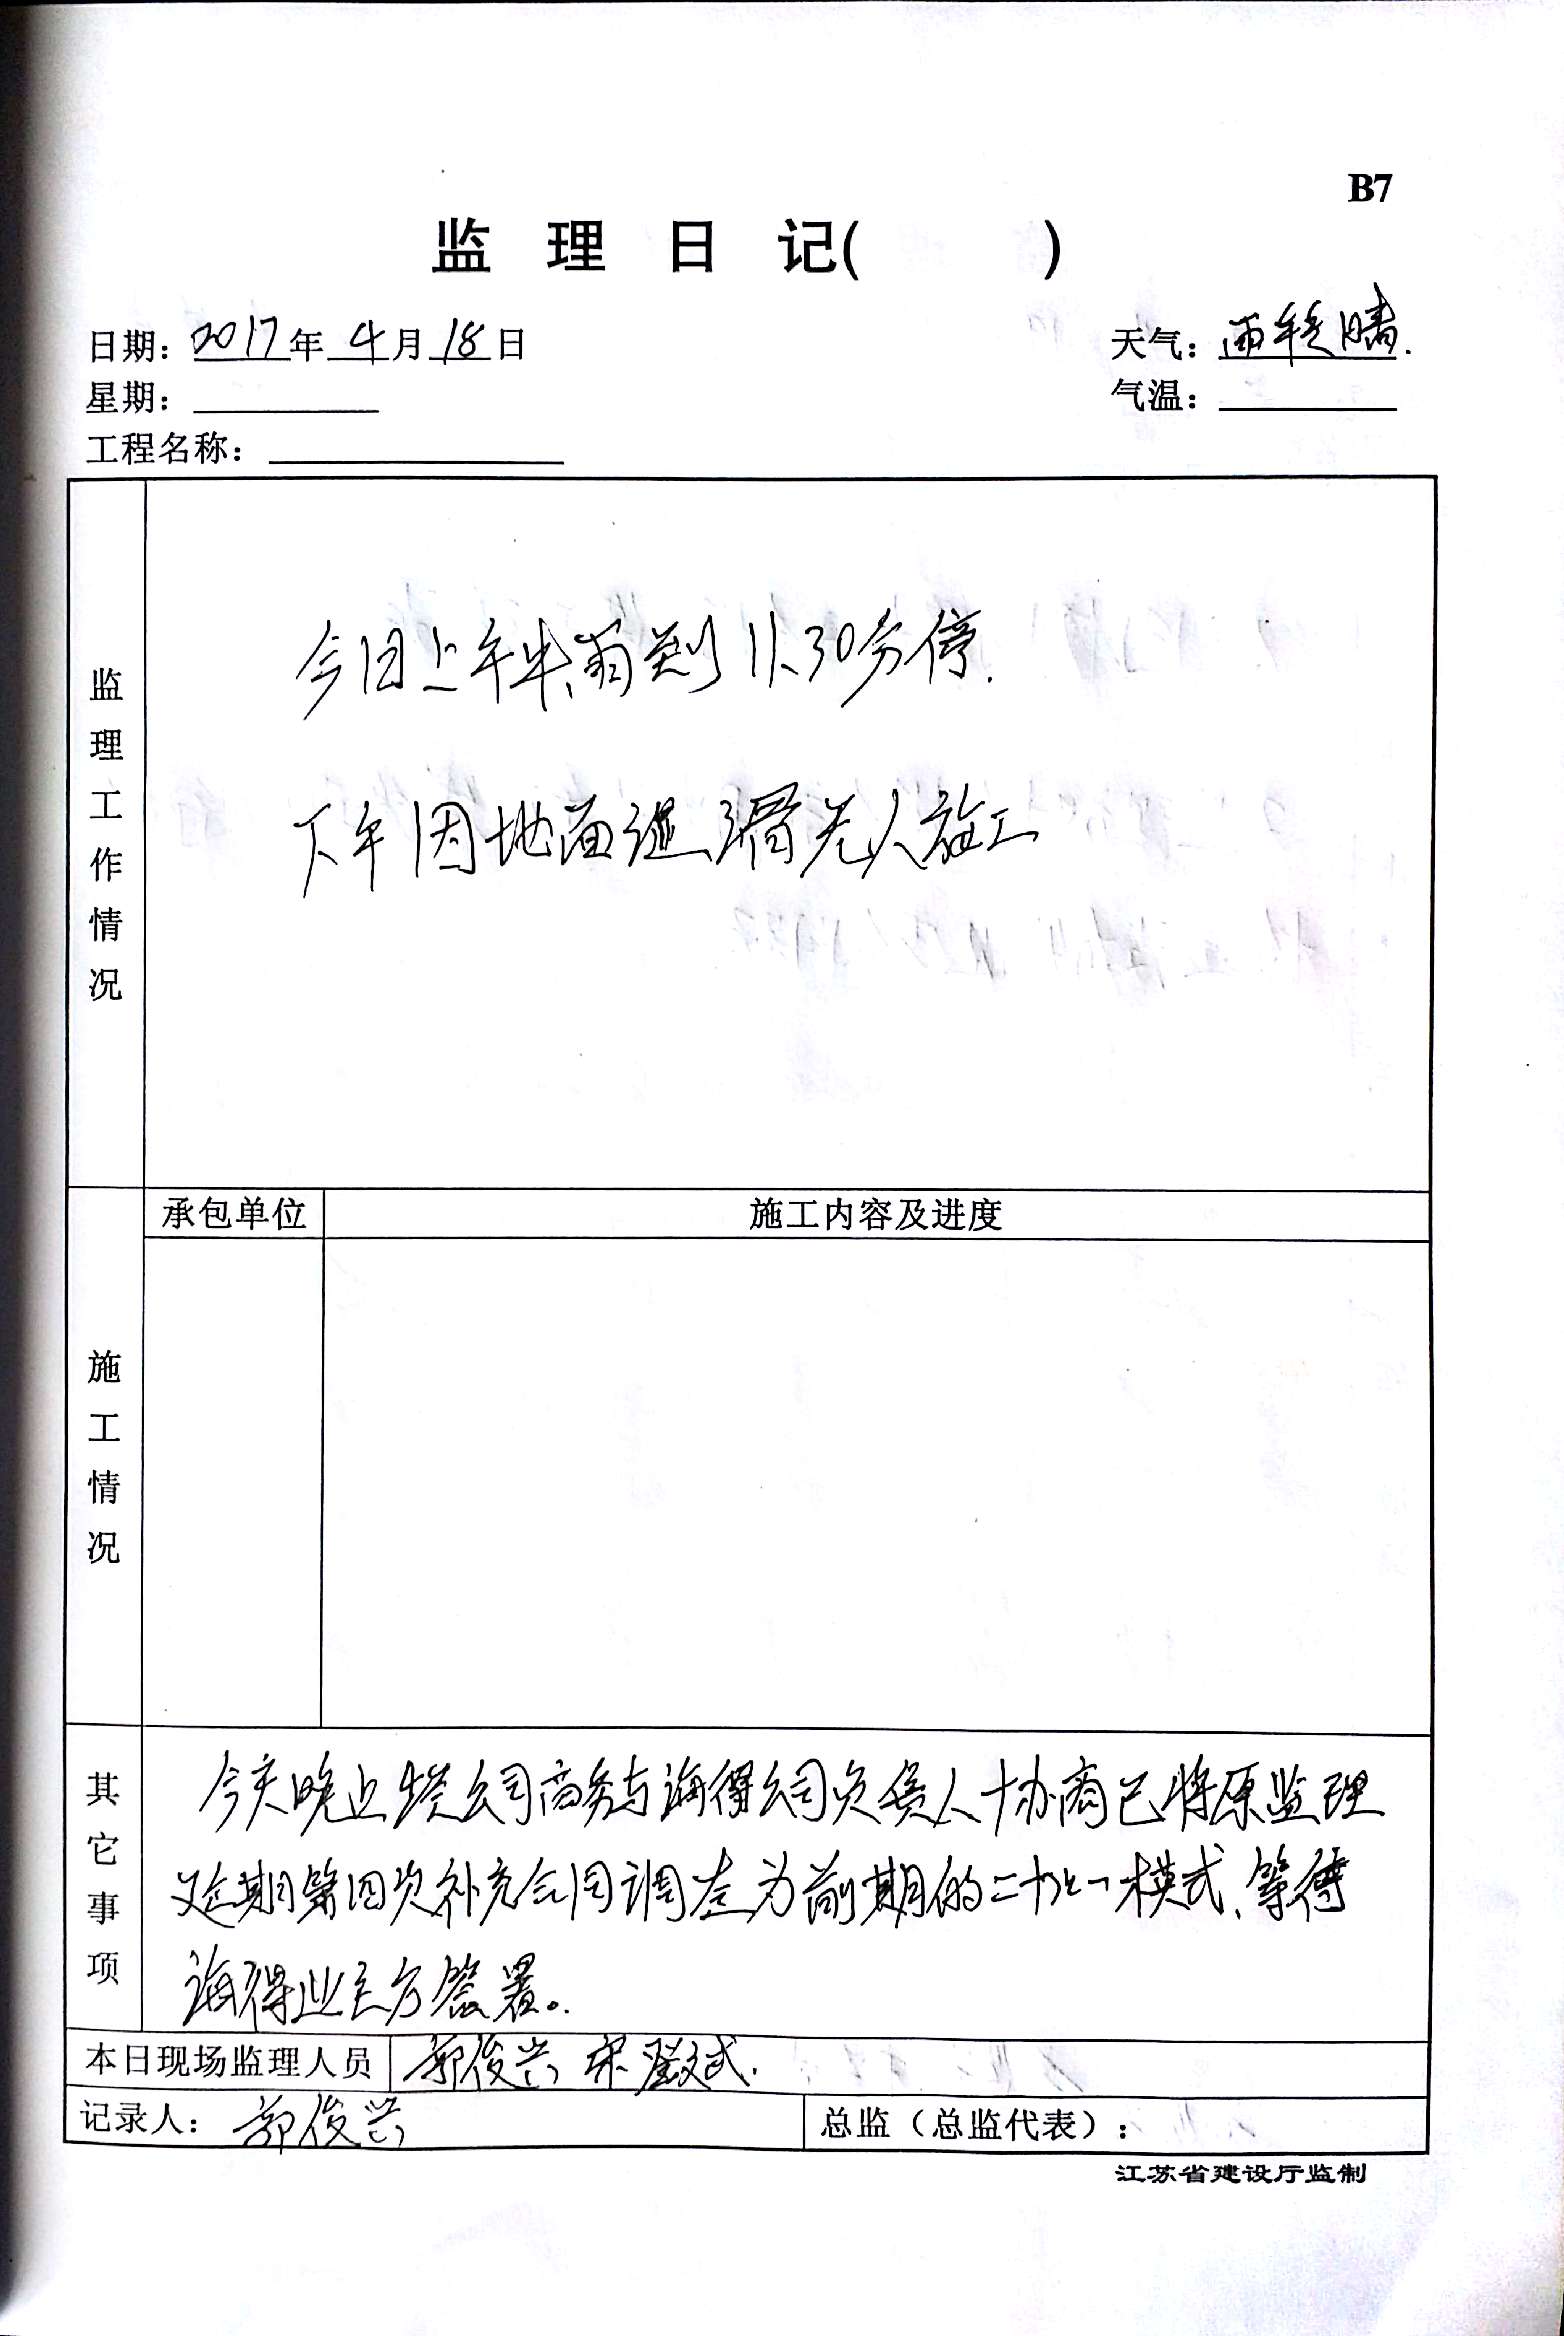 B7
监 理 日 记(        )
日期: 2017年 4月 18日
天气: 雨转晴.
星期:
气温:
工程名称:
监理工作情况
今日上午 雨到 11:30分停.
下午因地面湿滑无人施工
承包单位
施工内容及进度
施工情况
其它事项
今天晚上 公司商务与海得公司负责人协商已将原监理
延期第四次补充合同调整为前期的 模式、等待
海得业主方签署。
本日现场监理人员 郭俊兴 宋 斌.
记录人: 郭俊兴
总监（总监代表）:
江苏省建设厅监制